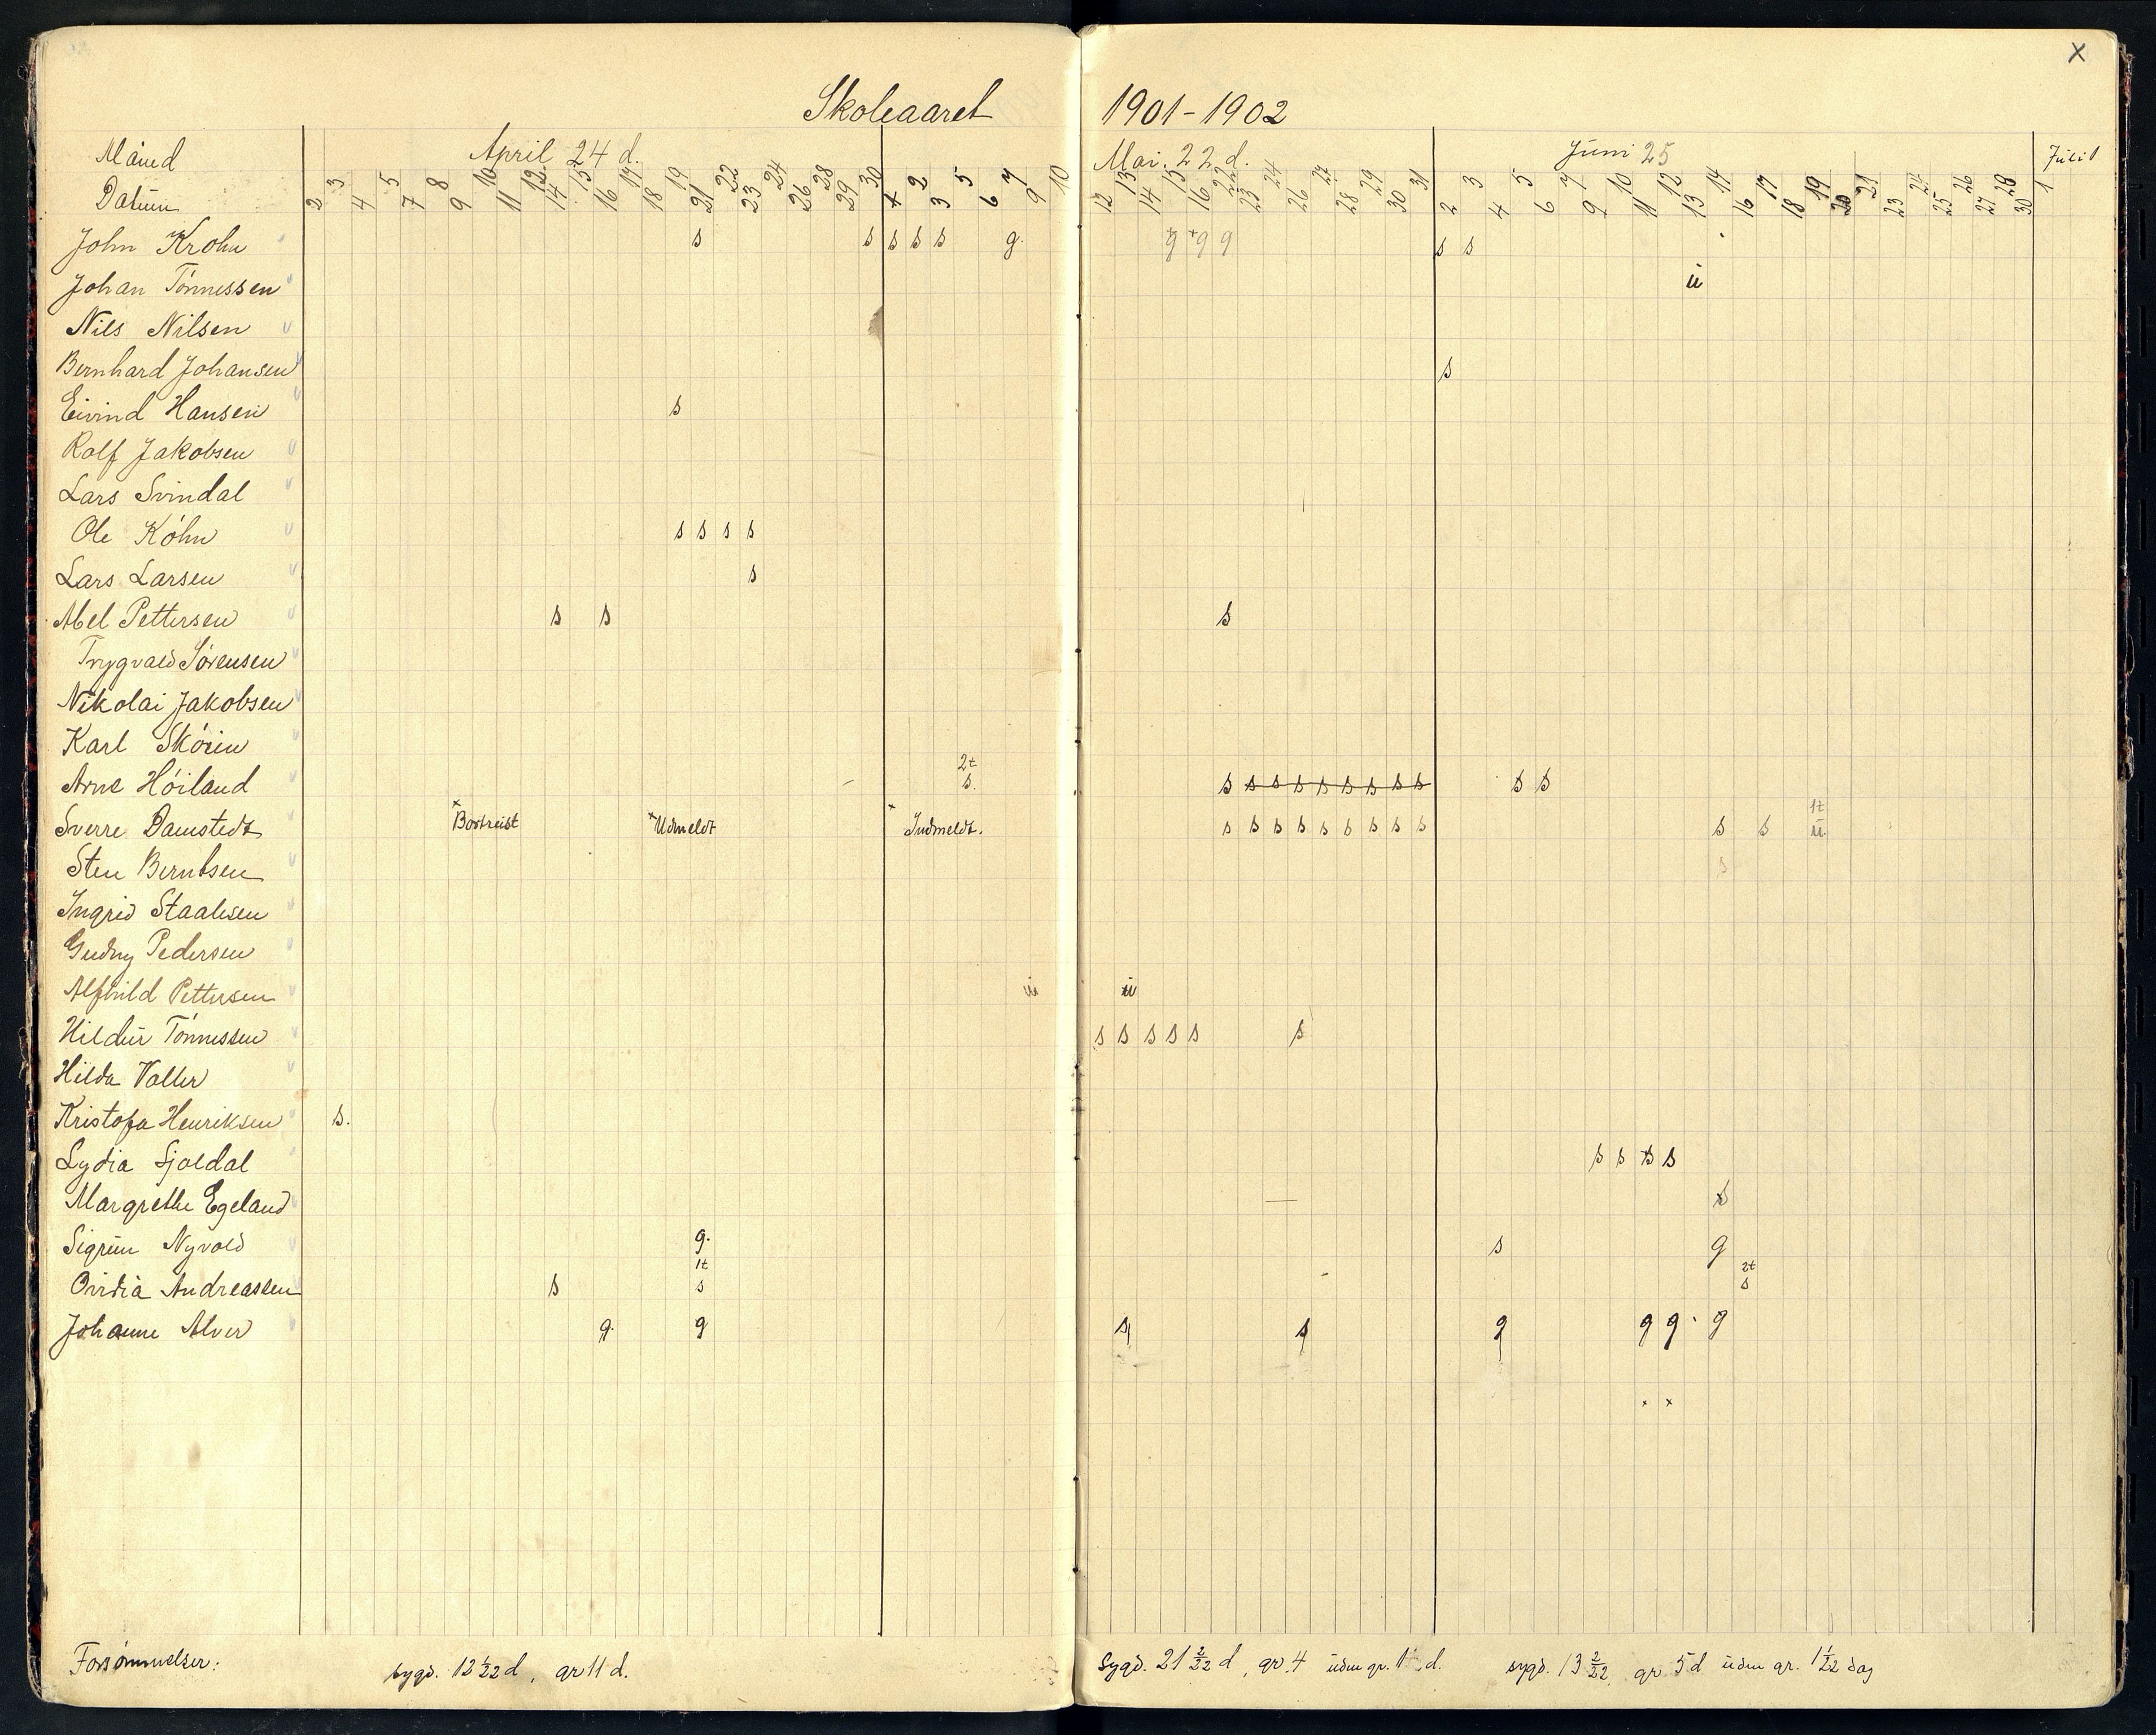 Skoleaaret 1901-1902
Måned April 24 d. Mai. 22 d. Juni 25 Juli 1
Datum 2 3 4 5 7 8 9 10 11 12 14 15 16 17 18 19 21 22 23 24 26 28 29 30 1 2 3 5 6 7 9 10 12 13 14 15 16 22 23 24 26 27 28 29 30 31 2 3 4 5 6 7 9 10 11 12 13 14 16 17 18 19 20 21 23 24 25 26 27 28 30 1
John Krohn s s s s s g. g g g s s
Johan Tönnessen ü
Nils Nilsen
Bernhard Johansen s
Eivind Hansen s
Rolf Jakobsen
Lars Svindal
Ole Köhn s s s s
Lars Larsen s
Abel Pettersen s s s
Trygvald Sörensen
Nikolai Jakobsen
Karl Skörin
2t
Arne Höiland s. s s s s s s s s s s s
1t
Sverre Damstedt Bortreist Udmeldt Indmeldt. s s s s s s s s s s s ü.
Sten Berntsen s
Ingrid Staalesen
Gudny Pedersen
Alfhild Pettersen ü ü
Hildur Tönnessen s s s s s s
Hilda Valler
Kristofa Henriksen s.
Lydia Sjoldal s s s s
Margrethe Egeland s
Sigrun Nyvold g. s g
1t 2t
Ovidia Andreassen s s s
Johanne Alver g. g s s g g g g
x x
Forsömmelser: sygd. 12 1/22 d, gr 11 d. sygd. 21 2/22 d, gr. 4 uden gr. 1 d. sygd. 13 2/22, gr 5 d uden gr. 1 1/22 dag
x